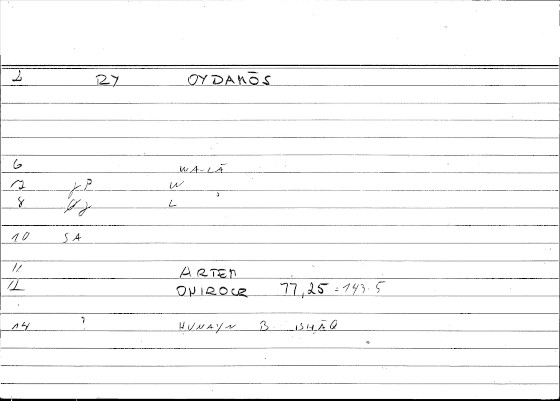 1 RY OYDAMŌS
6 WA-LĀ
12 yP W
8 y L
10 SA
11 ARTEM
12 ONIROCR 77,25 = 143.5
14 ? HUNAYN B ISHĀQ